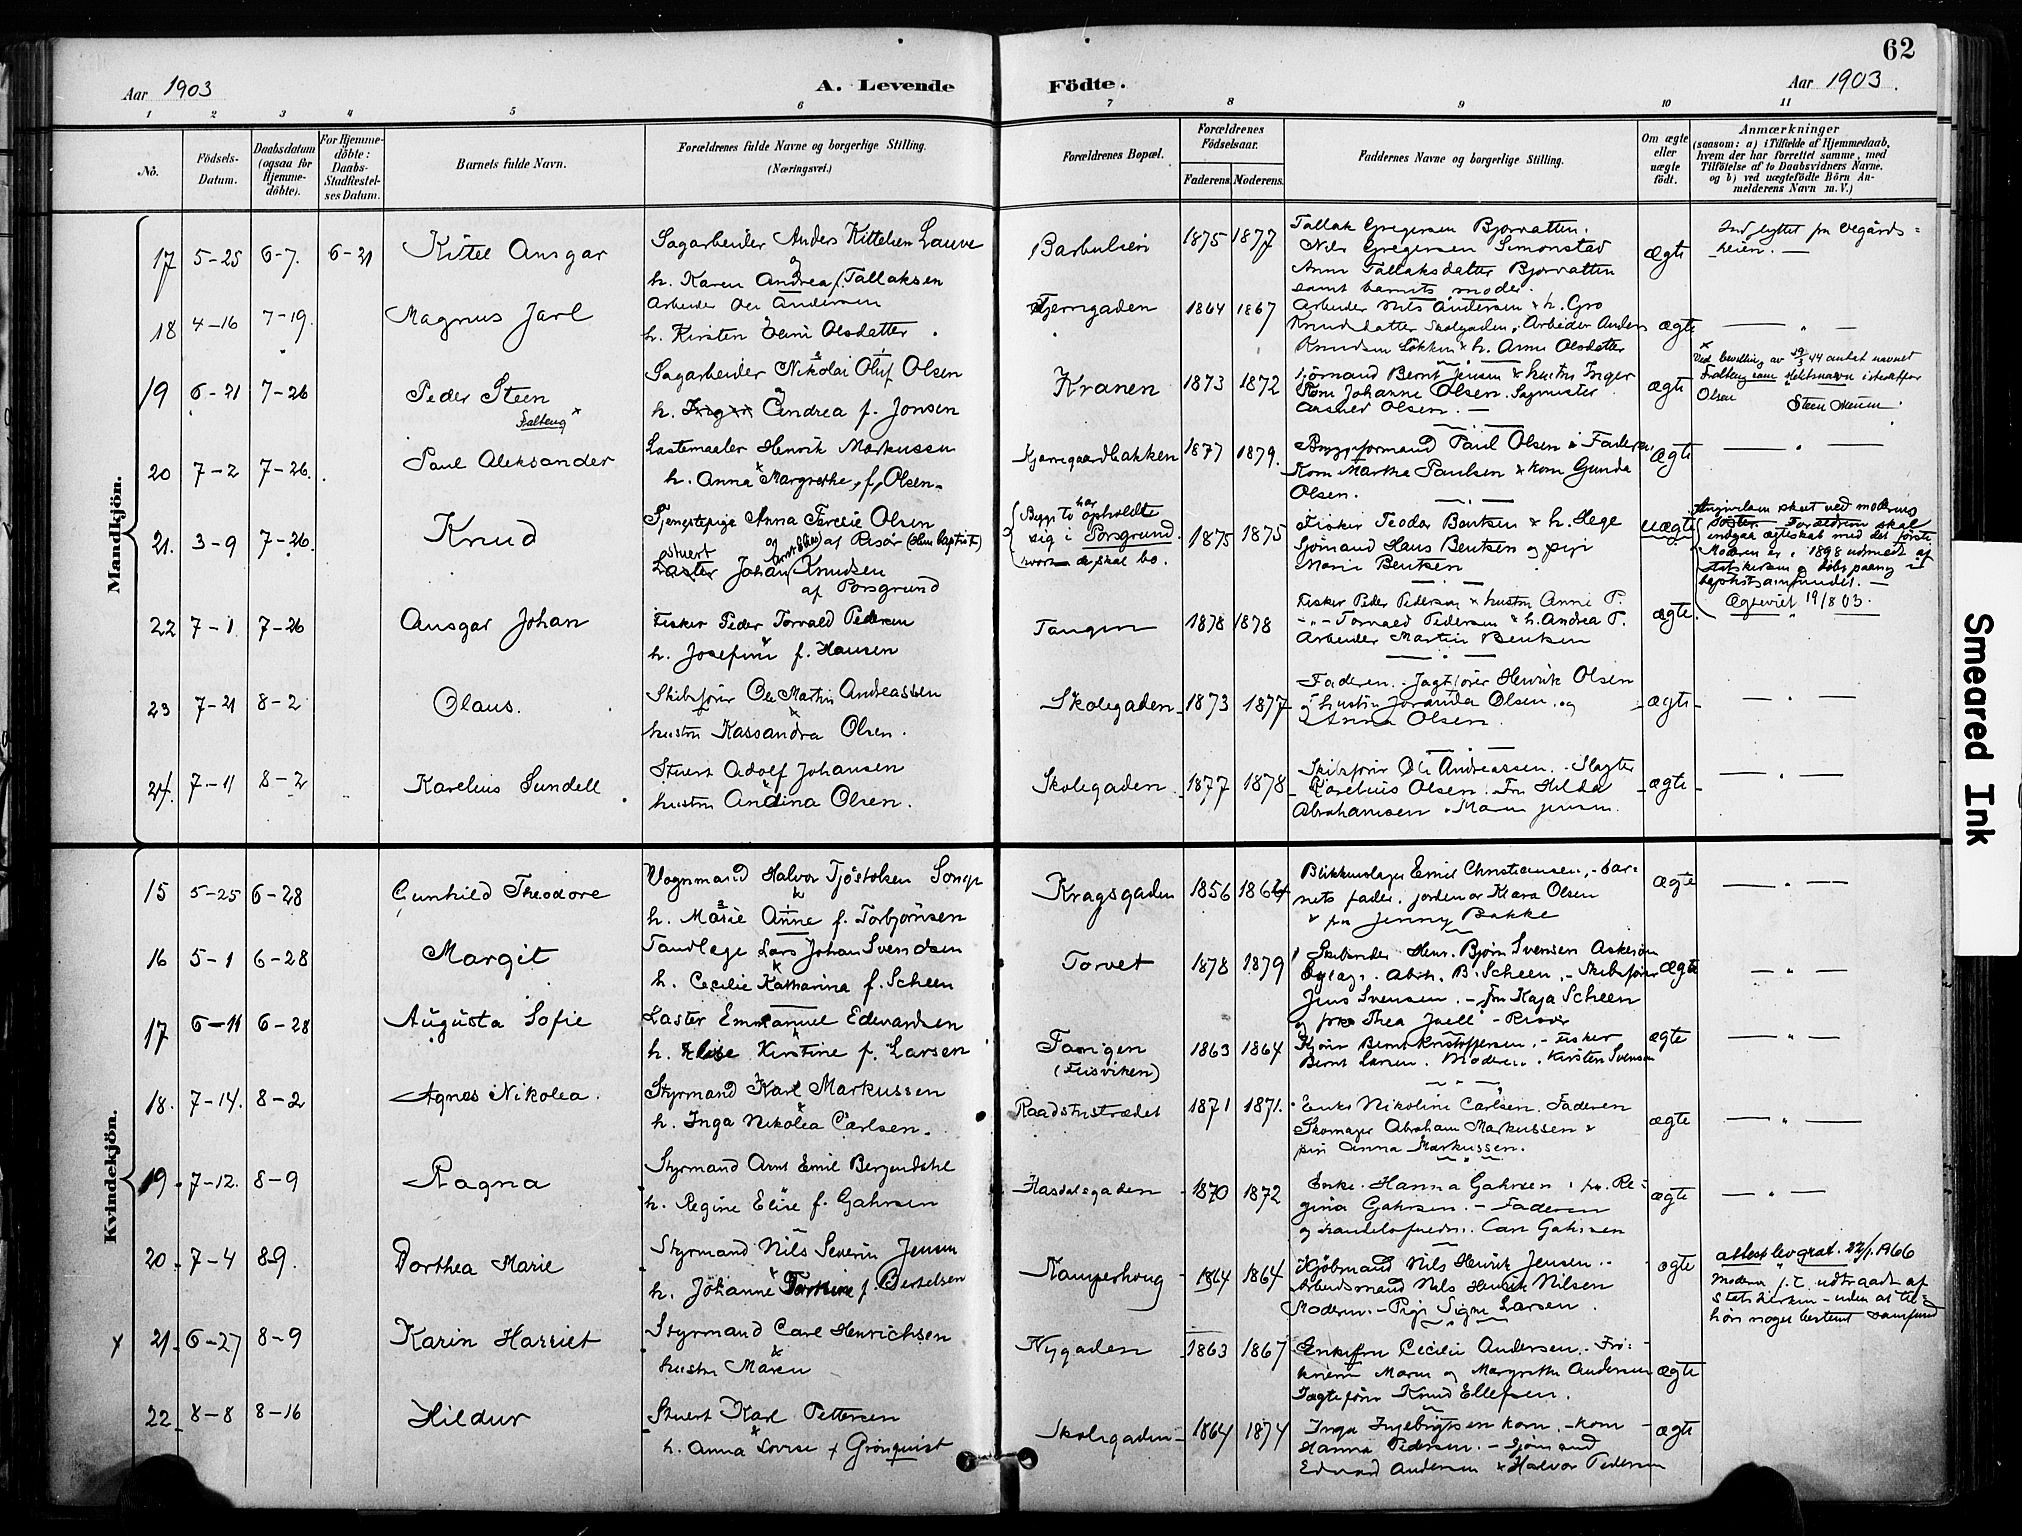 62
Aar 1903
A. Levende
Födte.
Aar 1903.
1 2 3 4 5 6 7 8 9 10 11
No.
Födsels-Datum.
Daabsdatum (ogsaa for Hjemme-döbte).
For Hjemme-döbte: Daabs-Stadfæstel-ses Datum.
Barnets fulde Navn.
Forældrenes fulde Navne og borgerlige Stilling.
(Næringsvei.)
Forældrenes Bopæl.
Forældrenes Födselsaar.
Faderens. Moderens.
Faddernes Navne og borgerlige Stilling.
Om ægte eller uægte födt.
Anmærkninger
(saasom: a) i Tilfælde af Hjemmedaab,
hvem der har forrettet samme, med
Tilföielse af to Daabsvidners Navne,
og b) ved uægtefödte Börn An-
melderens Navn m. V.)
Mandkjön.
17 5-25 6-7. 6-21 Kittel Ansgar
Sagarbeider Anders Kittelsen Lauve
h. Karen Andrea f. Tallaksen
Barbulien 1875 1877
Tallak Gregersen Bjorvatten.
Nils Gregersen Simonstad
Anne Tallaksdatter Bjorvatten
samt barnets moder.
ægte
Indflyttet fra Vegårds=
heien. —
18 4-16 7-19. Magnus Jarl
Arbeider Ole Andersen
h. Kirsten Olsdatter.
Tjerngaden 1864 1867
Arbeider Nils Andersen & h. Gro
Knudsdatter Skolegaden, Arbeider Anders
Knudsen Løkken & h. Anne Olsdatter
ægte
19 6-21 7-26 Peder Steen
Falkeng x
Sagarbeider Nikolai Oluf Olsen
h. Andrea f. Jonsen
Kranen 1873 1872
Sjømand Bernt Jensen & hustru Inger
Kone Johanne Olsen. Sagmester
Olsen. —
ægte
x Ved bevilling av 44 antat navnet
Falkeng som slektsnavn istedetfor
Olsen
20 7-2 7-26. Paul Aleksander
Lastemaaler Henrik Markussen
h. Anna Margrethe, f. Olsen.
Kjerregaardbakken 1877 1879.
Byggeformand Paul Olsen i Faderen
Kone Marthe Paulsen & kone Gunda
Olsen.
ægte
21. 3-9 7-26. Knud
Tjenestepige Anna Olsen
og af Risør
stuert
Laster Johan Knudsen
af Porsgrund
Begge to har opholdte
sig i Porsgrund
hvor de skal bo.
1875 1875
Fisker Teodor Bentsen & h. Hege
Sjømand Hans Bentsen og pige
Marie Bentsen
uægte
Angivelsen skeet ved moderens
søster. Forældrene skal
indgaa ægteskab med det første.
Moderen er i 1898 udmeldt af
statskirken
Ægteviet 19/8 03.
22 7-1 7-26 Ansgar Johan
Fisker Peder Torvald Pedersen
h. Josefine f. Hansen
Tangen 1878 1878
Fisker Peder Pedersen & hustru Anne P.
Torvald Pedersen & h. Andrea P.
Arbeider Martin Bentsen
ægte
23 7-21 8-2 Olaus.
Skibsfører Ole Martin Andreassen
hustru Kassandra Olsen.
Skolegaden 1873 1877
Faderen. Jagtfører Henrik Olsen
hustru Olsen. og
Anna Olsen.
ægte
24. 7-11 8-2 Karelius Sundell.
Stuert Adolf Johansen
hustru Andina Olsen.
Skolegaden. 1877 1878
Skibsfører Ole Andreassen. Slagter
Karelius Olsen. Fru Hilda
Abrahamsen
ægte
Kvindekjön.
15 5-25 6-28 Gunhild Theodore
Vognmand Halvor Tjøstolsen Songe
h. Marie Anne f. Torbjørnsen
Kragsgaden 1856
Blikkenslager Emil Christiansen, - bar-
nets fader, jordemor Klara Olsen
& frk Jenny Bakke
ægte
16 5-1 6-28 Margit
Tandlæge Lars Johan Svendsen
h. Cecilie Katharina f. Scheen
Torvet 1878 1879
Bjørn Svensen
Abrh. B. Scheen. - Skibsfører
Jens Svensen. - Fru Kaja Scheen
og Thea Juell - Risør
ægte
17 6-11 6-28 Augusta Sofie
Laster Emmanuel Edvardsen
h. Elise Kirstine f. Larsen
Tangen
(Flisviken)
1863 1864
Bernt Kristoffersen. - Fisker
Bernt Larsen. Moderen. Kirsten Svensen
ægte
18. 7-14. 8-2 Agnes Nikolea.
Styrmand Karl Markussen
h. Inga Nikolea Carlsen.
Raadstustrædet 1871 1871.
Enke Nikoline Carlsen. Faderen
Skomager Abraham Markussen &
pige Anna Markussen.
ægte
19. 7-12. 8-9 Ragna
Styrmand Arnt Emil Bergendahl
h. Regine Elise f. Gahrsen
Hasdalsgaden 1870 1872
Enke. Hanna Gahrsen, frk. Re-
gina Gahrsen. - Faderen
og Carl Gahrsen
ægte
20. 7-4 8-9. Dorthea Marie
Styrmand Nils Severin Jensen
h. Johanne f. Bertelsen
Kamperhoug 1864 1864
Kjøbmand Nils Henrik Jensen..
Arbeidsmand Nils Henrik Nilsen
Moderen. - Pige Signe Larsen.
ægte
attest lev grat. 22/1. 1966
Moderen f. T. udtraadt af
Statskirken - uden at til-
høre noget bestemt samfund
x 21. 6-27 8-9 Karin Harriet
Styrmand Carl Henrichsen
hustru Maren
Nygaden 1863 1867
Enkefru Cecilie Andersen. - Frø-
knerne Maren og Margrethe Andersen
Jagtefører Knud Ellefsen.
ægte
22. 8-8 8-16 Hildur
Stuert Karl Pettersen
h. Anna Lovise f Grönquist
Skolegaden 1864 1874
Inga Ingebrigtsen kone. - kone
Hanna Pedersen. - Sjømand
Edvard Andersen & Halvor Pedersen
ægte
Smeared Ink